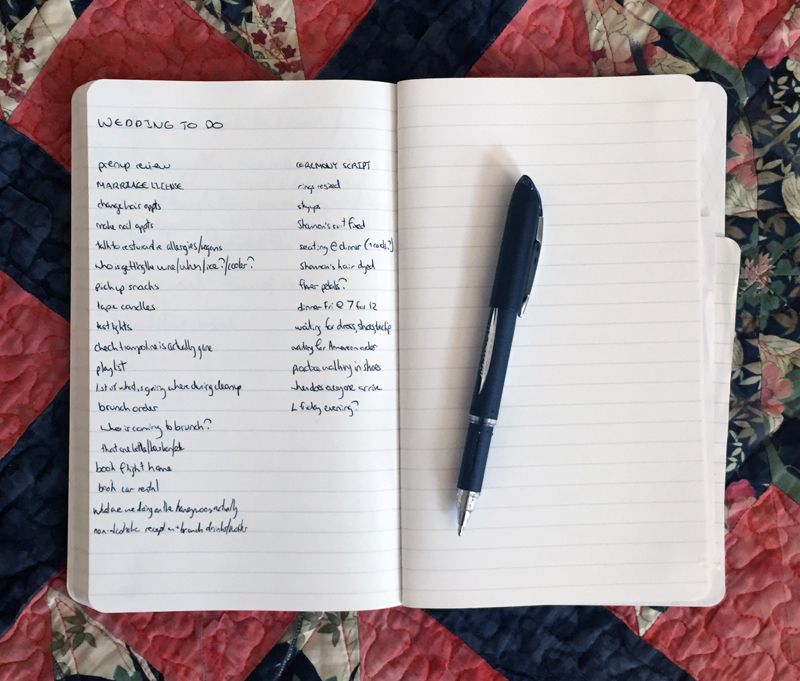 WEDDING TO DO
prenup review
MARRIAGE LICENSE
change hair appts
make nail appts
talk to restaurant re allergies/vegans
who is getting the wine/when/ice?/cooler?
pick up snacks
tape candles
test lights
check trampoline is actually gone
playlist
list of what is going where during cleanup
brunch order
who is coming to brunch?
that one
book flight home
book car rental
what are we doing on the honeymoon, actually
non-alcoholic reception + brunch drinks
CEREMONY SCRIPT
rings resized
Shannon's suit fixed
seating @ dinner
Shannon's hair dyed
flower petals?
dinner Fri @ 7 for 12
waiting for dress, shoes
waiting for Amazon order
practice walking in shoes
when does everyone arrive
friday evening?